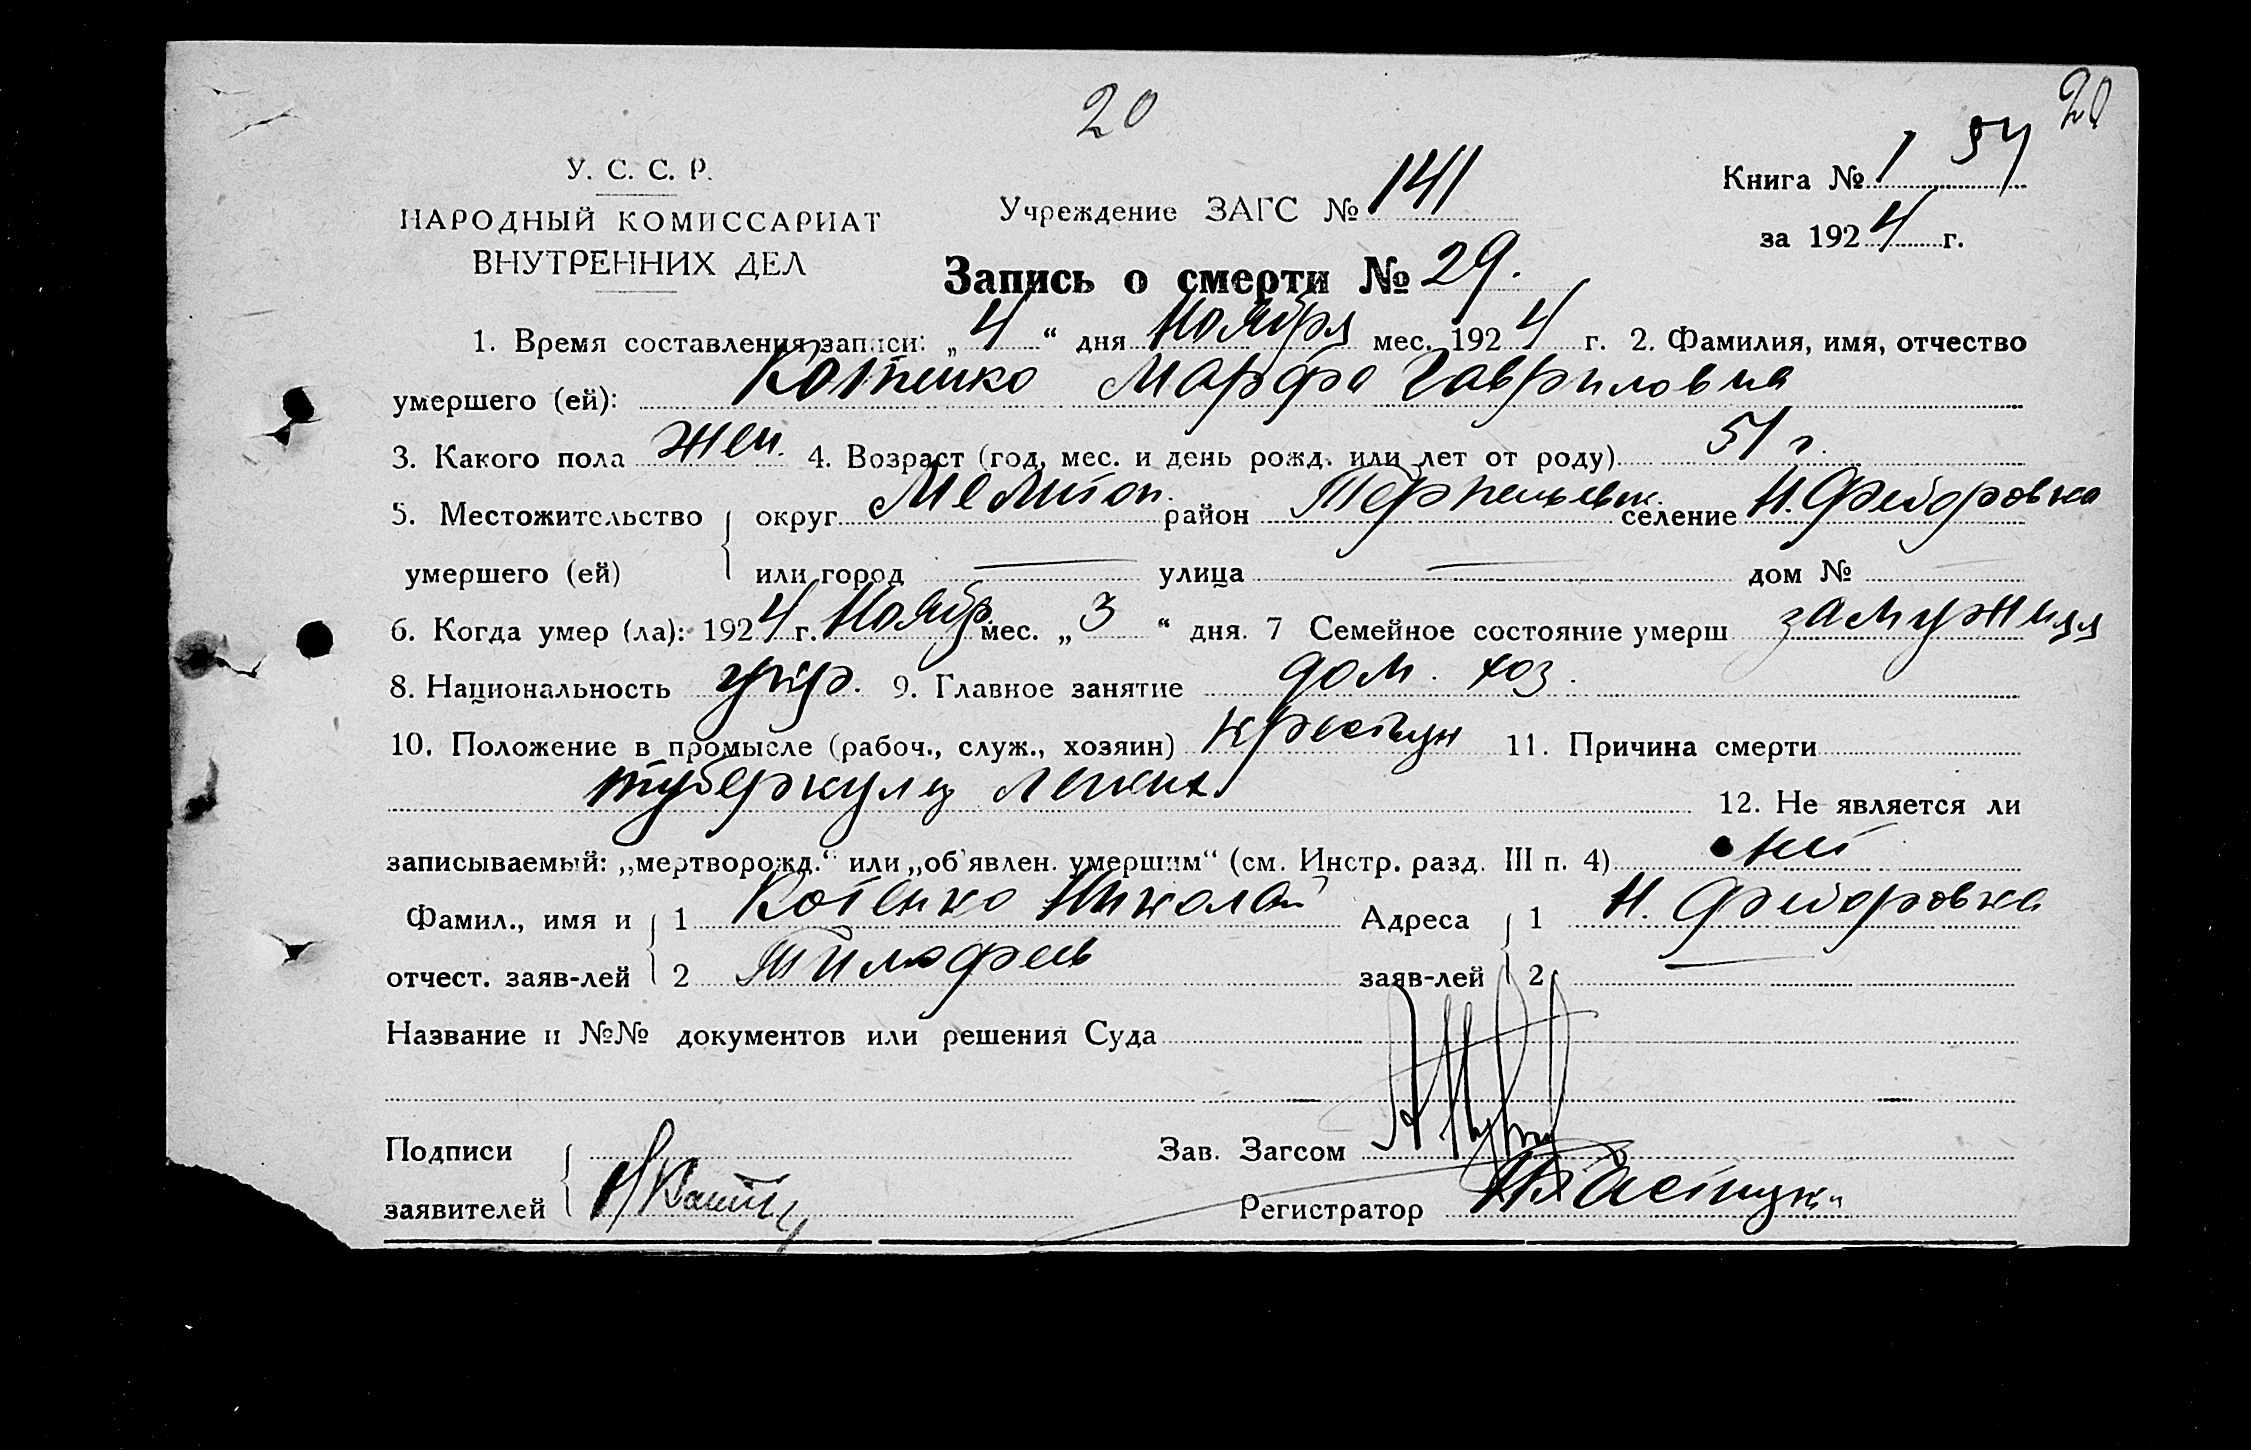 20
20
У. С. С. Р.
НАРОДНЫЙ КОМИССАРИАТ
ВНУТРЕННИХ ДЕЛ
Учреждение ЗАГС № 141
Книга № 1 54
за 1924 г.
Запись о смерти № 29.
1. Время составления записи: „4“ дня Ноября мес. 1924 г. 2. Фамилия, имя, отчество
умершего (ей): Котенко Марфа Гавриловна
3. Какого пола жен. 4. Возраст (год, мес. и день рожд. или лет от роду) 51 г.
5. Местожительство округ Мелитоп. район Терпеньевск. селение Н. Федоровка
умершего (ей) или город — улица — дом №
6. Когда умер (ла): 1924 г. Ноябр. мес. „3“ дня. 7 Семейное состояние умерш замужняя
8. Национальность укр. 9. Главное занятие дом. хоз.
10. Положение в промысле (рабоч., служ., хозяин) 11. Причина смерти
туберкулез легких
12. Не является ли
записываемый: „мертворожд.“ или „об'явлен. умершим“ (см. Инстр. разд. III п. 4) нет
Фамил., имя и 1 Котенко Николай Адреса 1 Н. Федоровка
отчест. заяв-лей 2 Тимофеев заяв-лей 2 —
Название и №№ документов или решения Суда
Подписи Зав. Загсом
заявителей Регистратор